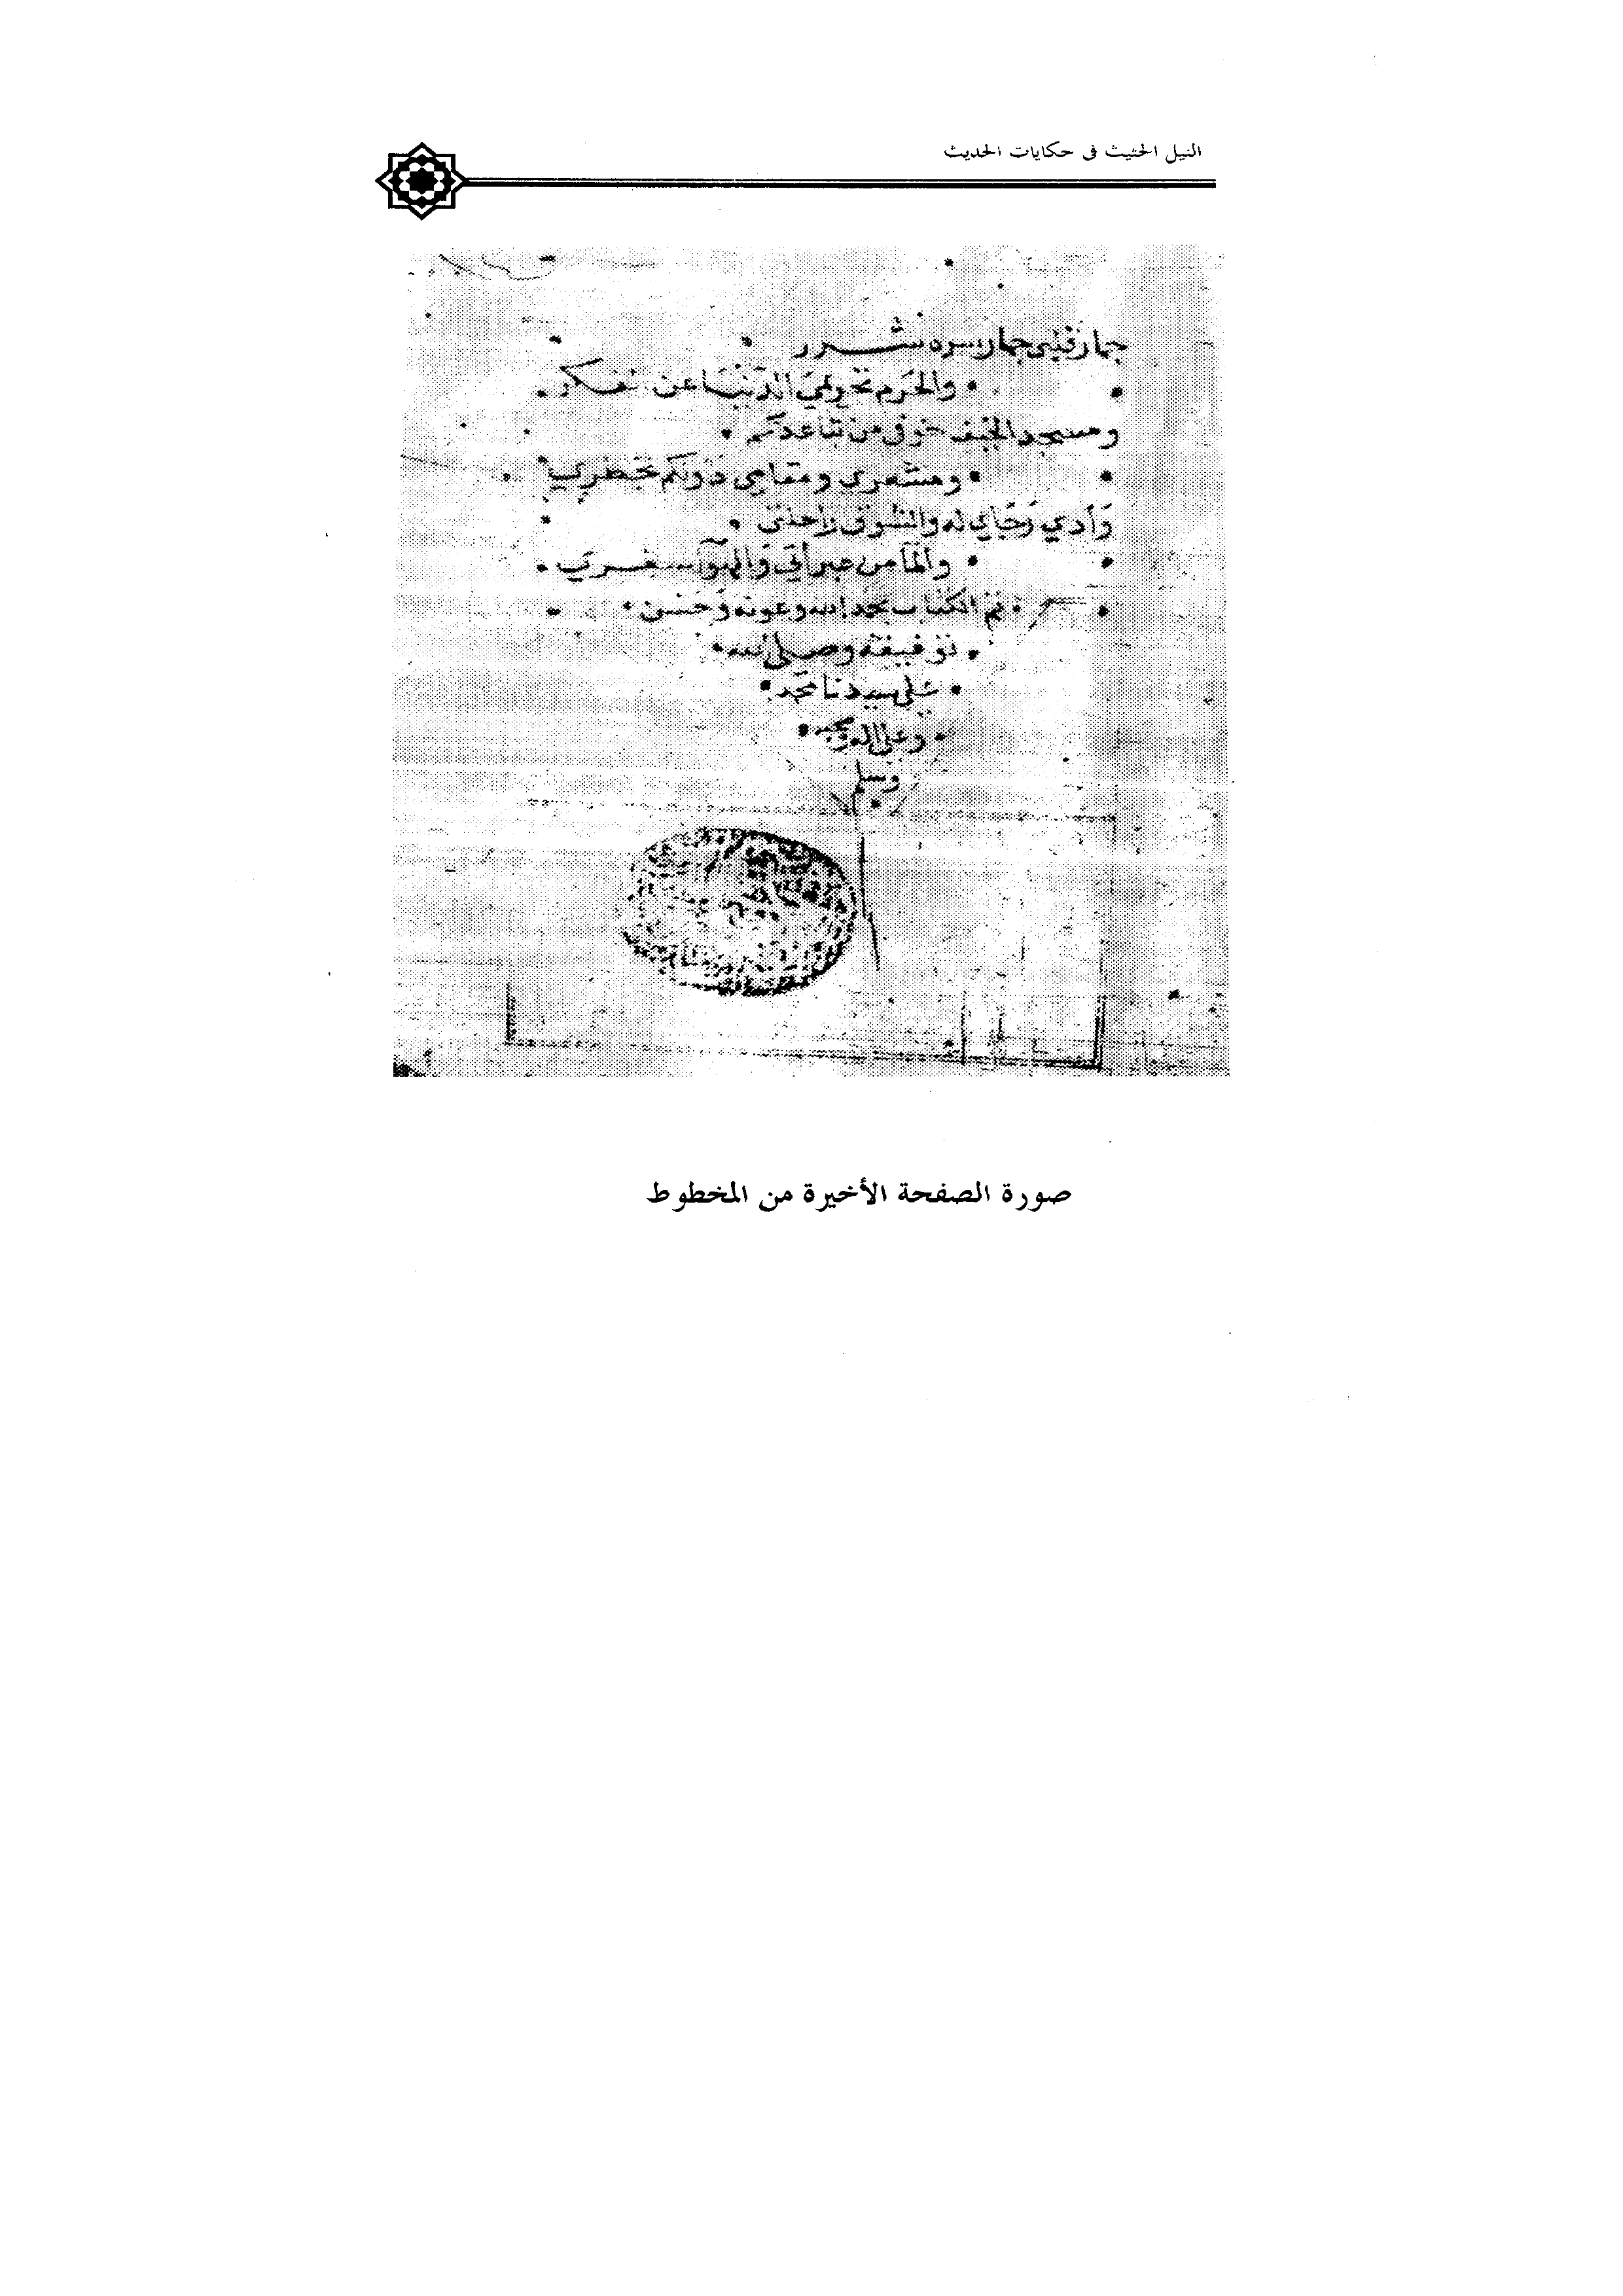 النيل الحثيث في حكايات الحديث
جمار قلبي جمار سره شرر
والحرم تحريمي الدنيا عن
ومسجد الخيف خوفي من تباعدكم
ومشعري ومقامي دونكم خطري
وادي رجاي له والشوق راحلتي
والمآ من عبراتي والهوآ سفري
تم الكتاب بحمد الله وعونه وحسن
توفيقه وصلى الله
على سيدنا محمد
وعلى اله وصحبه
وسلم
صورة الصفحة الأخيرة من المخطوط